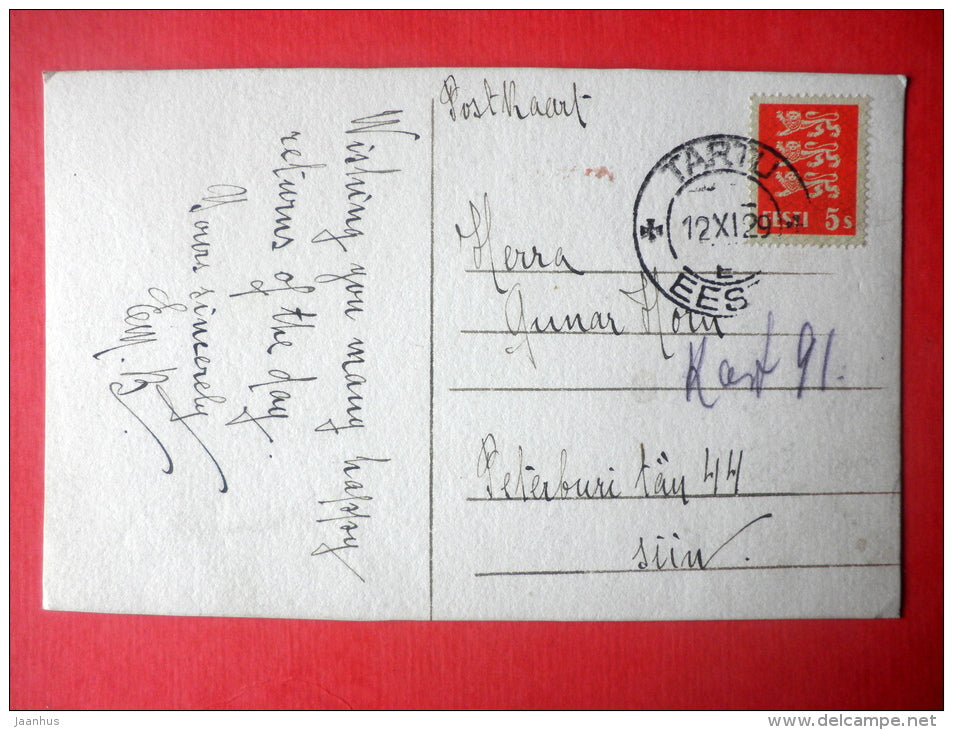 Postkaart
TARTU
12 XI 29
E
EES
EESTI 5 s
Herra
Gunar Horn
Kast 91.
Peterburi tän 44
siin.
Wishing you many happy
returns of the day.
Yours sincerely
Jaanhus
www.delcampe.net